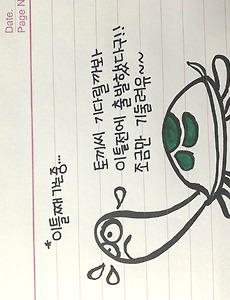 Date.
Page N
*이틀째 가는중...
토끼씨 기다릴까봐
이틀전에 출발했다구!!
조금만 기둘려유~~